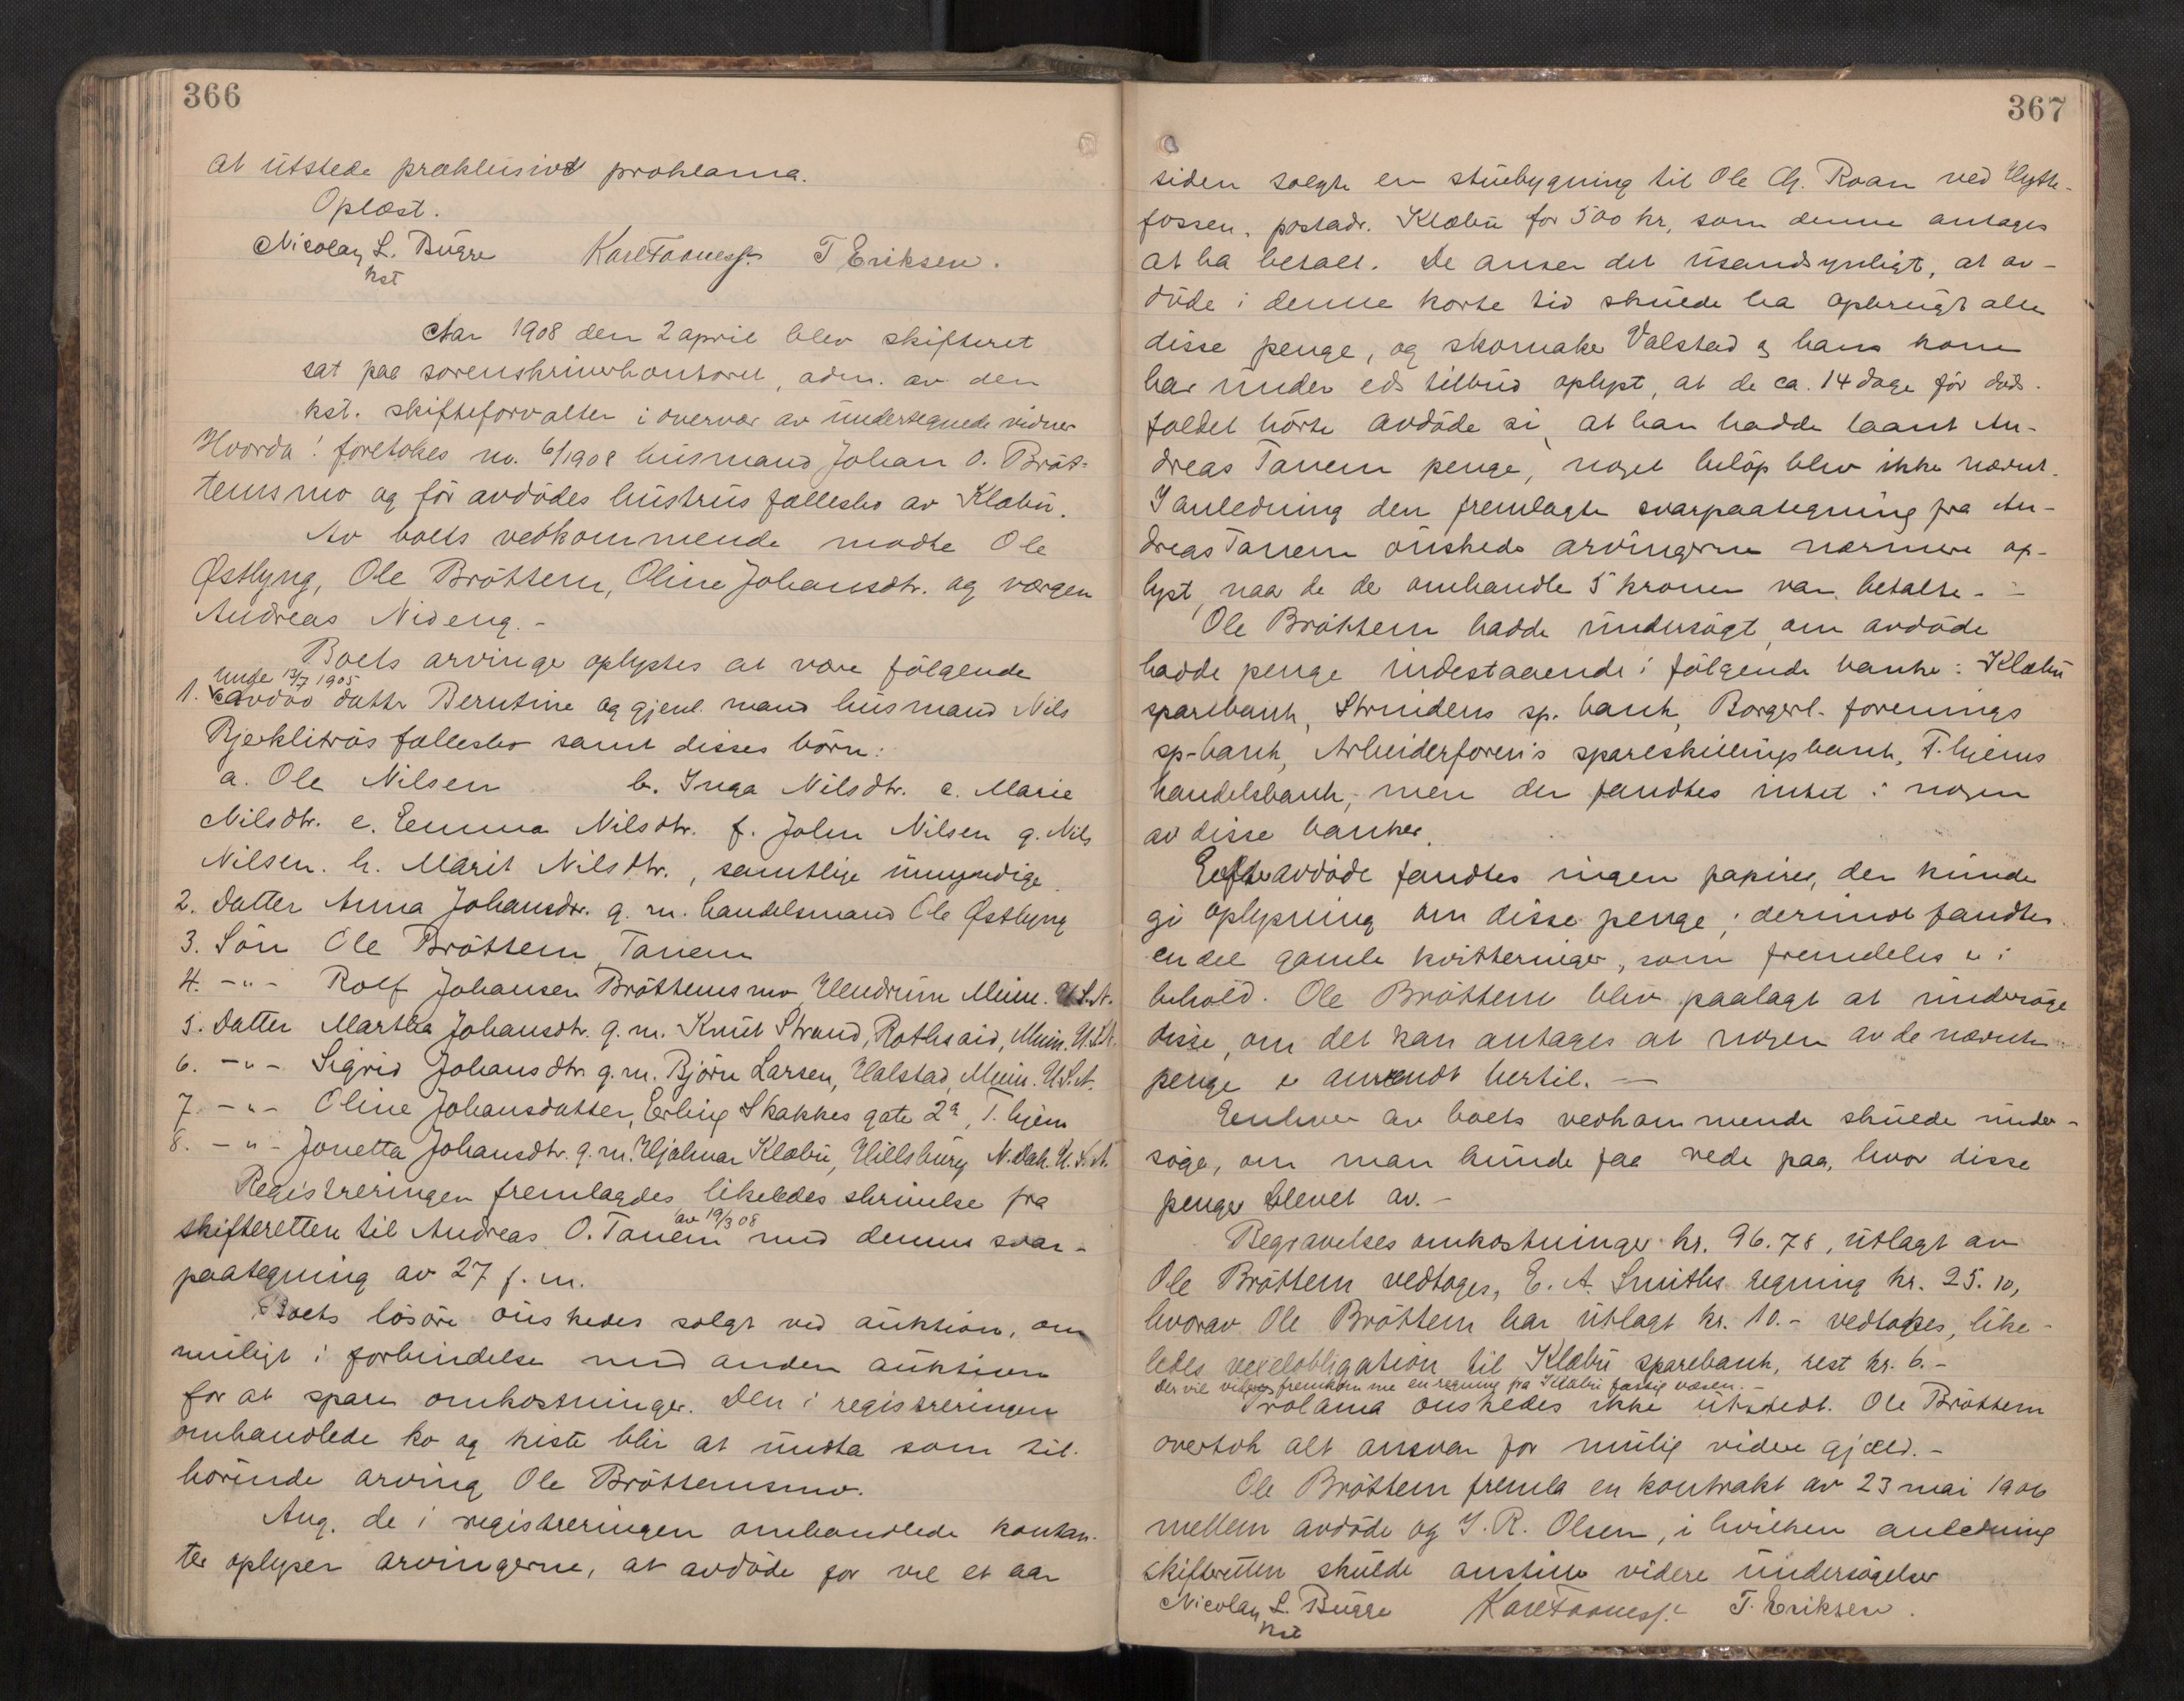 366
at utstede præklusivt proklama.
Oplæst.
Nicolay L. Bugge T Eriksen.
kst
Aar 1908 den 2 april blev skifteret
sat paa sorenskriverkontoret, adm. av den
kst. skifteforvalter i overvær av undertegnede vidner
Hvorda: foretokes no. 6/1908 husmand Johan O. Brøt-
temsmo og før avdødes hustrus fællesbo av Klæbu.
Av boets vedkommende mødte Ole
Østlyng, Ole Brøttem, Oline Johansdtr. og værgen
Andreas Nideng.-
Boets arvinge oplystes at være følgende
13/7 1905
1. avdød datter Berntine og gjenl. mand husmand Nils
Bjerklitrøs fællesbo samt disses børn:
a. Ole Nilsen b. Inga Nilsdtr. c. Marie
Nilsdtr. e. Emma Nilsdtr. f. John Nilsen g. Nils
Nilsen. h. Marit Nilsdtr., samtlige umyndige.
2. Datter Anna Johansdtr. g. m. handelsmand Ole Østlyng
3. Søn Ole Brøttem, Tanem
4. -"- Rolf Johansen Brøttemsmo, Hendrum Minn. U.S.A.
5. Datter Martha Johansdtr. g. m. Knut Strand, Rothsaid, Minn. U.S.A.
6. -"- Sigrid Johansdtr. g. m. Bjørn Larsen, Halstad, Minn. U.S.A.
7. -"- Oline Johansdatter, Erling Skakkes gate 2a, T.hjem
8. -"- Jonetta Johansdtr. g. m. Hjalmar Klæbu, Hillsburg N. Dak. U.S.A.
Registreringen fremlagdes likeledes skrivelse fra
av 19/3 08
skifteretten til Andreas O. Tanem med dennes svar-
paategning av 27 f. m.
Boets løsøre ønskedes solgt ved auktion, om
muligt i forbindelse med anden auktion
for at spare omkostninger. Den i registreringen
omhandlede ko og kiste blir at undta som til-
hørende arving Ole Brøttemsmo.
Ang. de i registreringen omhandlede kontan-
ter oplyser arvingerne, at avdøde for vel et aar
367
siden solgte en stuebygning til Ole Chr. Roan ved Hytte-
fossen, postadr. Klæbu for 500 kr, som denne antages
at ha betalt. De anser det usandsynligt, at av-
døde i denne korte tid skulde ha opbrugt alle
disse penge, og skomaker Valstad og hans kone
har under eds tilbud oplyst, at de ca. 14 dage før døds-
faldet hørte avdøde si, at han hadde laant An-
dreas Tanem penge, noget beløp blev ikke nævnt.
I anledning den fremlagte svarpaategning fra An-
dreas Tanem ønskede arvingerne nærmere op-
lyst, naar de de omhandle 5 kroner var betalte.-
Ole Brøttem hadde undersøgt, om avdøde
hadde penge indestaaende i følgende banke: Klæbu
sparebank, Strindens sp. bank, Borgerl. forenings
sp-bank, Arbeiderforen's spareskillingsbank, T.hjems
handelsbank, men der fandtes intet i nogen
av disse banker.
Efter avdøde fandtes ingen papirer, der kunde
gi oplysning om disse penge; derimot fandtes
endel gamle kvitteringer, som fremdeles er i
behold. Ole Brøttem blev paalagt at undersøge
disse, om det kan antages at nogen av de nævnte
penge er anvendt hertil. —
Enhver av boets vedkommende skulde under-
søge, om man kunde faa rede paa, hvor disse
penger blevet av.-
Begravelses omkostninger kr. 96.78, utlagt av
Ole Brøttem vedtoges, E. A. Smiths regning kr. 25.10,
hvorav Ole Brøttem har utlagt kr. 10.- vedtokes, like-
ledes vexelobligation til Klæbu sparebank, rest kr. 6.-
Der vil fremkomme en regning fra Klæbu fattigvæsen.-
Prolama ønskedes ikke utstedt. Ole Brøttem
overtok alt ansvar for mulig videre gjæld.-
Ole Brøttem fremla en kontrakt av 23 mai 1906
mellem avdøde og J. R. Olsen, i hvilken anledning
skifteretten skulde anstille videre undersøgelser
Nicolay L. Bugge T. Eriksen.
kst